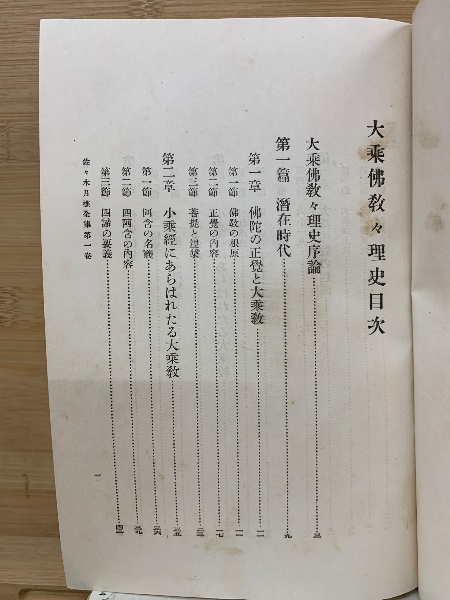 大乘佛敎々理史目次
大乘佛敎々理史序論……三
第一篇 潛在時代……九
第一章 佛陀の正覺と大乘敎……一一
第一節 佛敎の根原……一一
第二節 正覺の內容……一七
第三節 菩提と涅槃……
第二章 小乘經にあらはれたる大乘敎……
第一節 阿含の名義……
第二節 四阿含の內容……
第三節 四諦の要義……
佐々木月樵全集第一卷
一